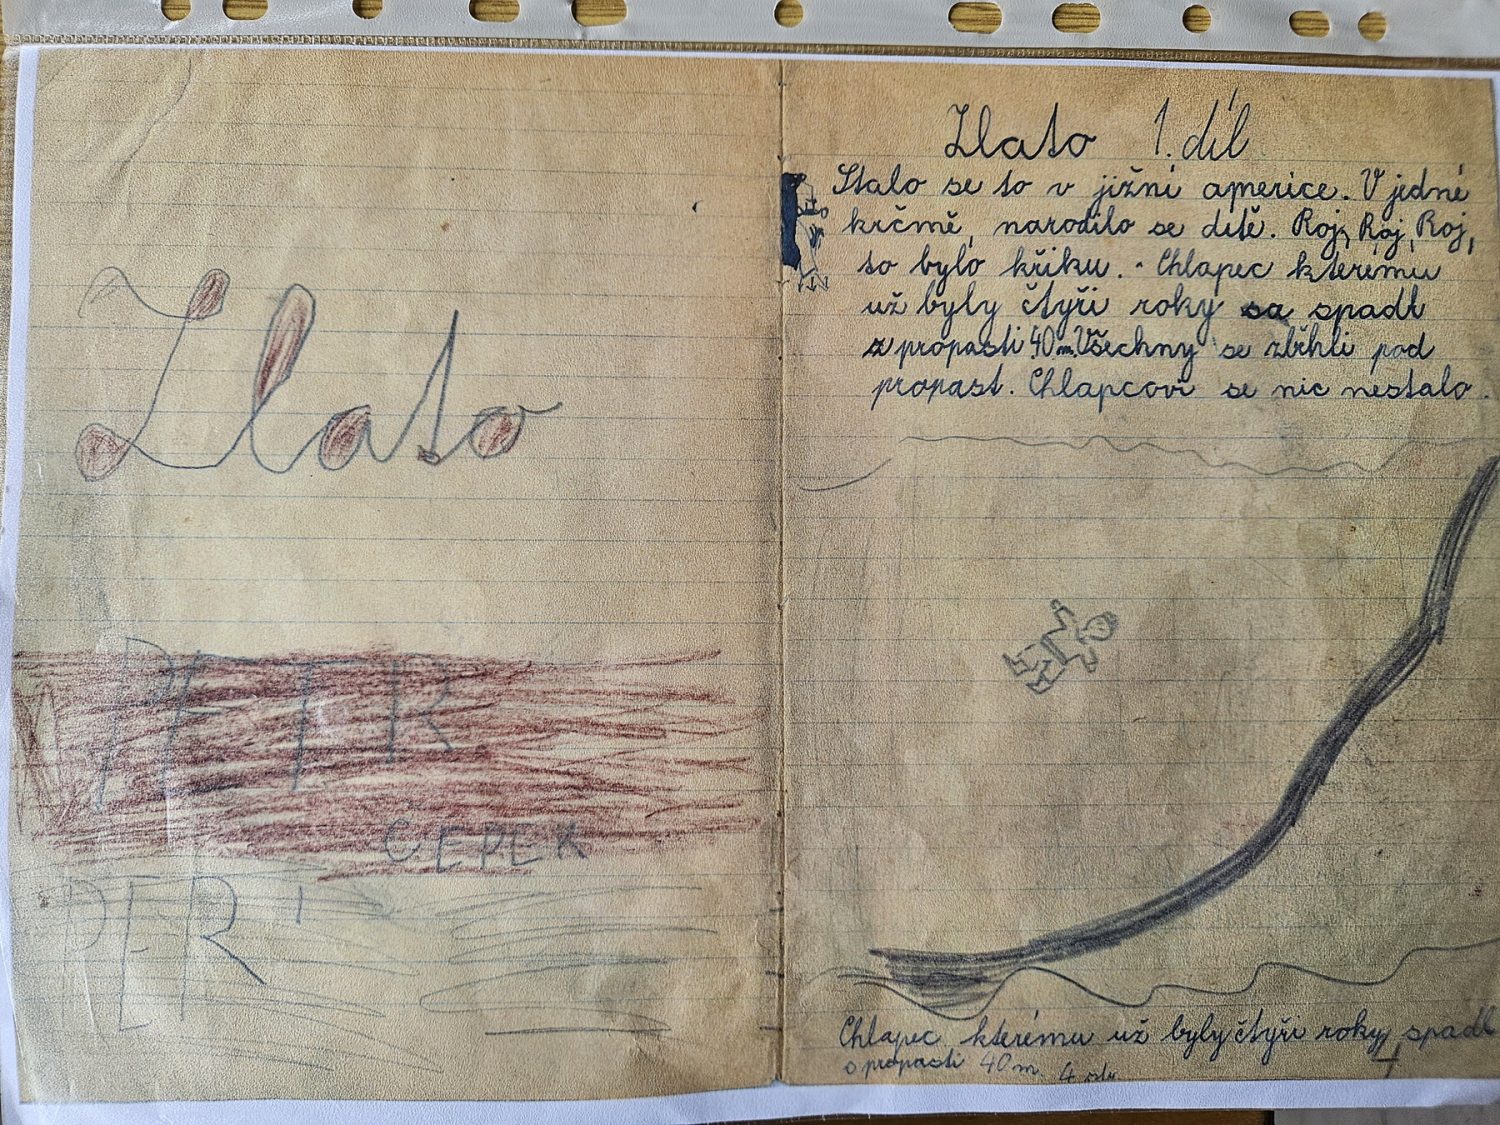 Zlato
PETR
ČEPEK
PER
Zlato 1. díl
Stalo se to v jižní americe. V jedné
krčmě, narodilo se dítě. Roj, Roj, Roj,
to bylo křiku. - Chlapec kterému
už byly čtyři roky sa spadl
z propasti 40 m. Všechny se zběhli pod
propast. Chlapcovi se nic nestalo.
Chlapec kterému už byly čtyři roky, spadl
s propasti 40 m. 4 str.